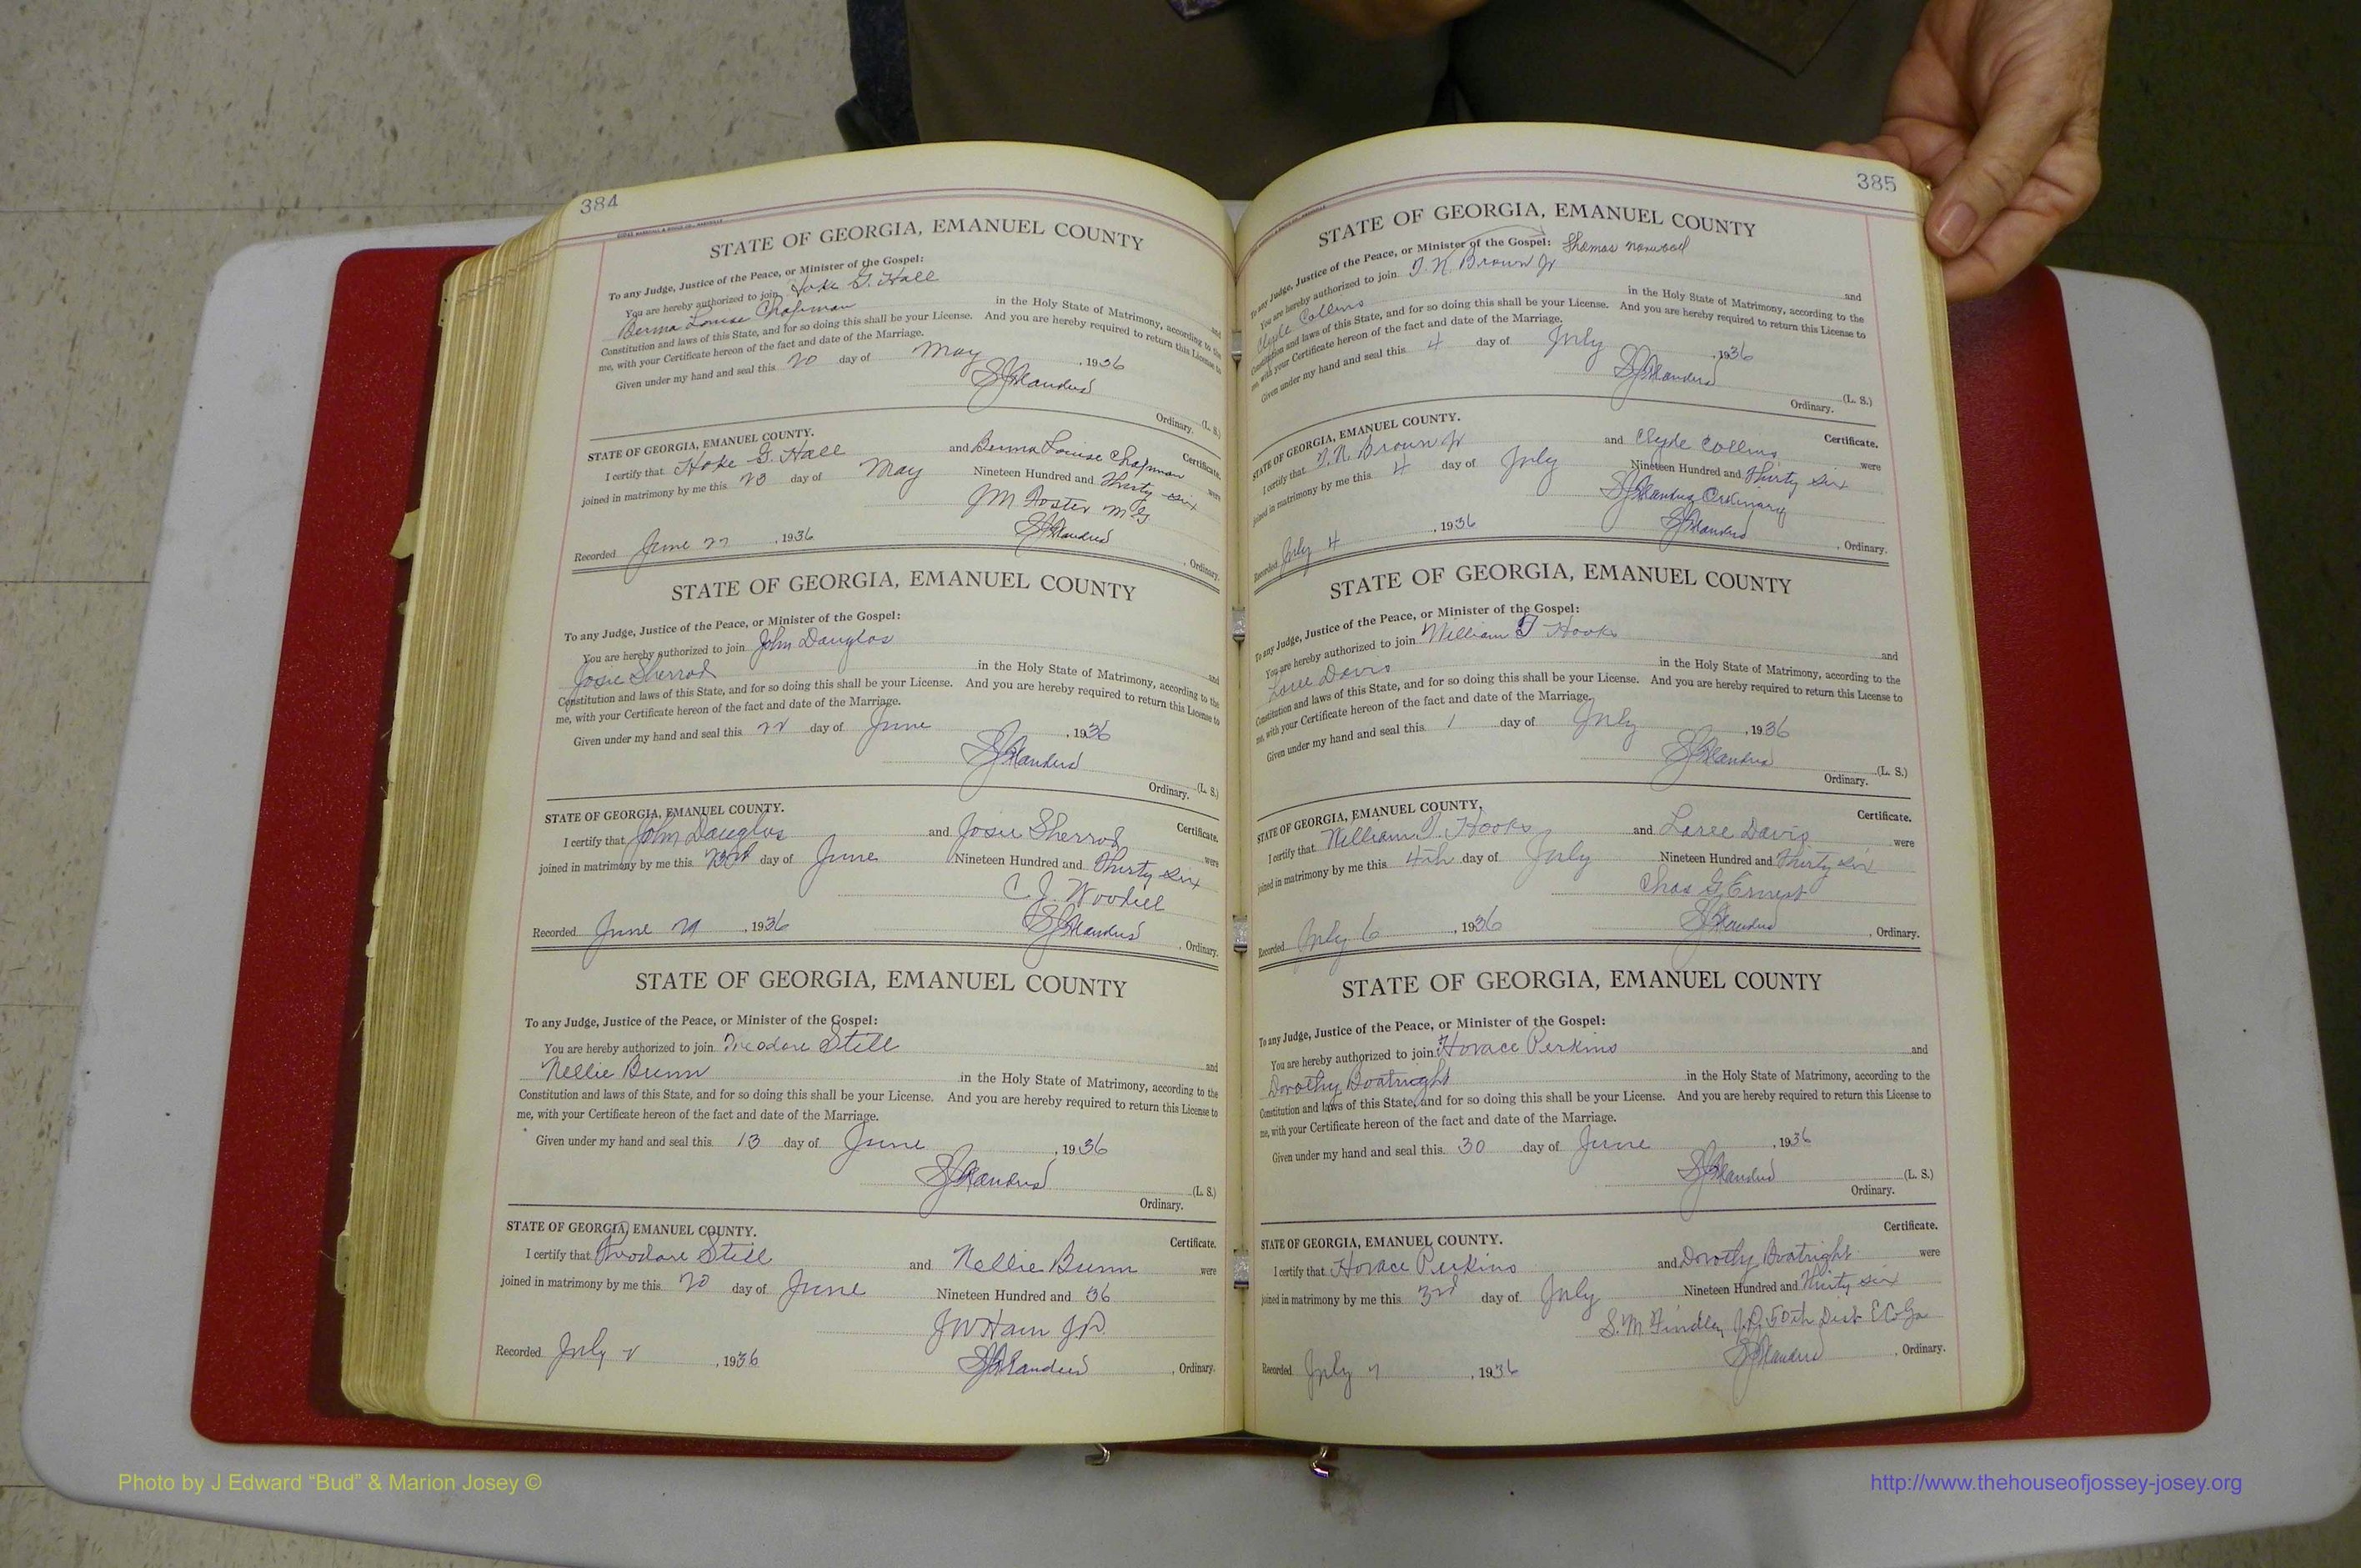 384
STATE OF GEORGIA, EMANUEL COUNTY
To any Judge, Justice of the Peace, or Minister of the Gospel:
You are hereby authorized to join Hoke G. Hall and
Berma Louise Chapman in the Holy State of Matrimony, according to the
Constitution and laws of this State, and for so doing this shall be your License. And you are hereby required to return this License to
me, with your Certificate hereon of the fact and date of the Marriage.
Given under my hand and seal this 20 day of May, 1936
(L. S.)
Ordinary.
STATE OF GEORGIA, EMANUEL COUNTY. Certificate.
I certify that Hoke G. Hall and Berma Louise Chapman were
joined in matrimony by me this 23 day of May Nineteen Hundred and Thirty six
JM Foster M G
Recorded June 22, 1936 , Ordinary.
STATE OF GEORGIA, EMANUEL COUNTY
To any Judge, Justice of the Peace, or Minister of the Gospel:
You are hereby authorized to join John Douglas and
Josie Sherrod in the Holy State of Matrimony, according to the
Constitution and laws of this State, and for so doing this shall be your License. And you are hereby required to return this License to
me, with your Certificate hereon of the fact and date of the Marriage.
Given under my hand and seal this 22 day of June, 1936
(L. S.)
Ordinary.
STATE OF GEORGIA, EMANUEL COUNTY. Certificate.
I certify that John Douglas and Josie Sherrod were
joined in matrimony by me this 23rd day of June Nineteen Hundred and Thirty six
C. J.
Recorded June 29, 1936 , Ordinary.
STATE OF GEORGIA, EMANUEL COUNTY
To any Judge, Justice of the Peace, or Minister of the Gospel:
You are hereby authorized to join Theodore Still and
Nellie Bunn in the Holy State of Matrimony, according to the
Constitution and laws of this State, and for so doing this shall be your License. And you are hereby required to return this License to
me, with your Certificate hereon of the fact and date of the Marriage.
Given under my hand and seal this 13 day of June, 1936
(L. S.)
Ordinary.
STATE OF GEORGIA, EMANUEL COUNTY. Certificate.
I certify that Theodore Still and Nellie Bunn were
joined in matrimony by me this 20 day of June Nineteen Hundred and 36
JW Ham JP
Recorded July 2, 1936 , Ordinary.
385
STATE OF GEORGIA, EMANUEL COUNTY
To any Judge, Justice of the Peace, or Minister of the Gospel: Thomas Norwood
You are hereby authorized to join T. N. Brown Jr and
Clyde Collins in the Holy State of Matrimony, according to the
Constitution and laws of this State, and for so doing this shall be your License. And you are hereby required to return this License to
me, with your Certificate hereon of the fact and date of the Marriage.
Given under my hand and seal this 4 day of July, 1936
(L. S.)
Ordinary.
STATE OF GEORGIA, EMANUEL COUNTY. Certificate.
I certify that T. N. Brown Jr and Clyde Collins were
joined in matrimony by me this 4 day of July Nineteen Hundred and Thirty six
Ordinary
Recorded July 4, 1936 , Ordinary.
STATE OF GEORGIA, EMANUEL COUNTY
To any Judge, Justice of the Peace, or Minister of the Gospel:
You are hereby authorized to join William T Hooks and
Loree Davis in the Holy State of Matrimony, according to the
Constitution and laws of this State, and for so doing this shall be your License. And you are hereby required to return this License to
me, with your Certificate hereon of the fact and date of the Marriage.
Given under my hand and seal this 1 day of July, 1936
(L. S.)
Ordinary.
STATE OF GEORGIA, EMANUEL COUNTY. Certificate.
I certify that William T. Hooks and Loree Davis were
joined in matrimony by me this 4th day of July Nineteen Hundred and Thirty six
Chas G Ernest
Recorded July 6, 1936 , Ordinary.
STATE OF GEORGIA, EMANUEL COUNTY
To any Judge, Justice of the Peace, or Minister of the Gospel:
You are hereby authorized to join Horace Perkins and
Dorothy Boatright in the Holy State of Matrimony, according to the
Constitution and laws of this State, and for so doing this shall be your License. And you are hereby required to return this License to
me, with your Certificate hereon of the fact and date of the Marriage.
Given under my hand and seal this 30 day of June, 1936
(L. S.)
Ordinary.
Certificate.
STATE OF GEORGIA, EMANUEL COUNTY.
I certify that Horace Perkins and Dorothy Boatright were
joined in matrimony by me this 3rd day of July Nineteen Hundred and Thirty six
S. M Findley J.P. 50th Dist E Co Ga
Recorded July 7, 1936 , Ordinary.
Photo by J Edward “Bud” & Marion Josey ©
http://www.thehouseofjossey-josey.org